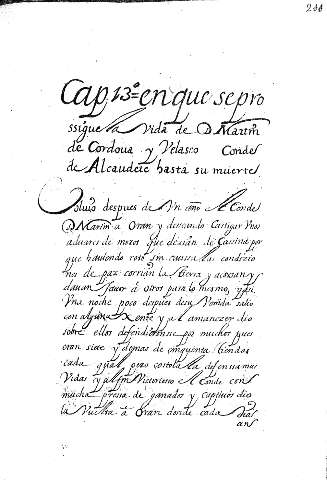 211
Cap 13º = en que se pro
ssigue la Vida de D. Martin
de Cordoua y Velasco Conde
de Alcaudete hasta su muerte
Boluio despues de Vn año el Conde
D. Martin a Oran y deseando Castigar Vnos
aduares de moros que desian de Canastel por
que hauiendo roto sin causa las condicio
nes de paz corrian la tierra y
dauan fauor à otros para lo mismo,
Vna noche poco despues desu Venida salio
con alguna Xente y al amanezer dio
sobre ellos defendieronse por mucho pues
eran siete y demas de cinquenta tiendas
cada qual pero costole la defensa mas
Vidas y al fin Victorioso el Conde con
mucha presa de ganados y captiuos dio
la Vuelta à Oran donde cada